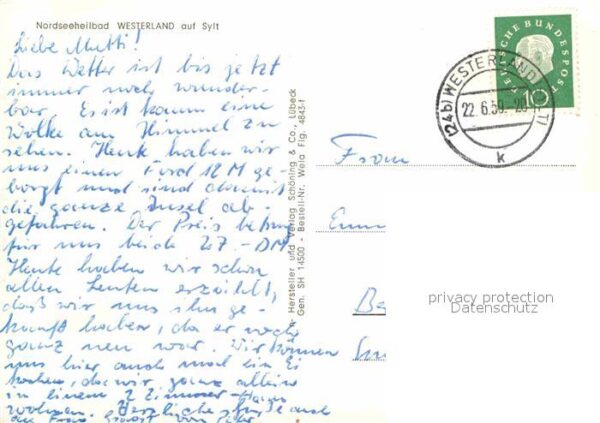 Nordseeheilbad WESTERLAND auf Sylt
Liebe Mutti!
Das Wetter ist bis jetzt
immer noch wunder-
bar. Es ist kaum eine
Wolke am Himmel zu
sehen. Heute haben wir
uns einen Ford 12M ge-
borgt und sind damit
die ganze Insel ab-
gefahren. Der Preis betrug
für uns beide 27.- DM
Heute haben wir schon
allen Leuten erzählt,
daß wir uns ihn ge-
kauft haben, da er noch
ganz neu war. Wir können
uns hier auch mal ein Ei
kochen, da wir ganz allein
in einem 2 Zimmer-Haus
wohnen. Herzliche Grüße auch
an Frau von
Hersteller und Verlag Schöning & Co., Lübeck
Gen. SH 14500 - Bestell-Nr. Wela Flg. 4845-f
DEUTSCHE BUNDESPOST
10
(24b) WESTERLAND
22.6.59.-20
k
Frau
privacy protection
Datenschutz